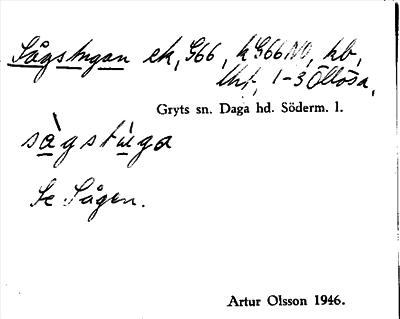 Sågstugan ek, G66, k G66 NO, hb,
1-3 Öllösa,
Gryts sn. Daga hd. Söderm. l.
sàgstùga
Se Sågen.
Artur Olsson 1946.